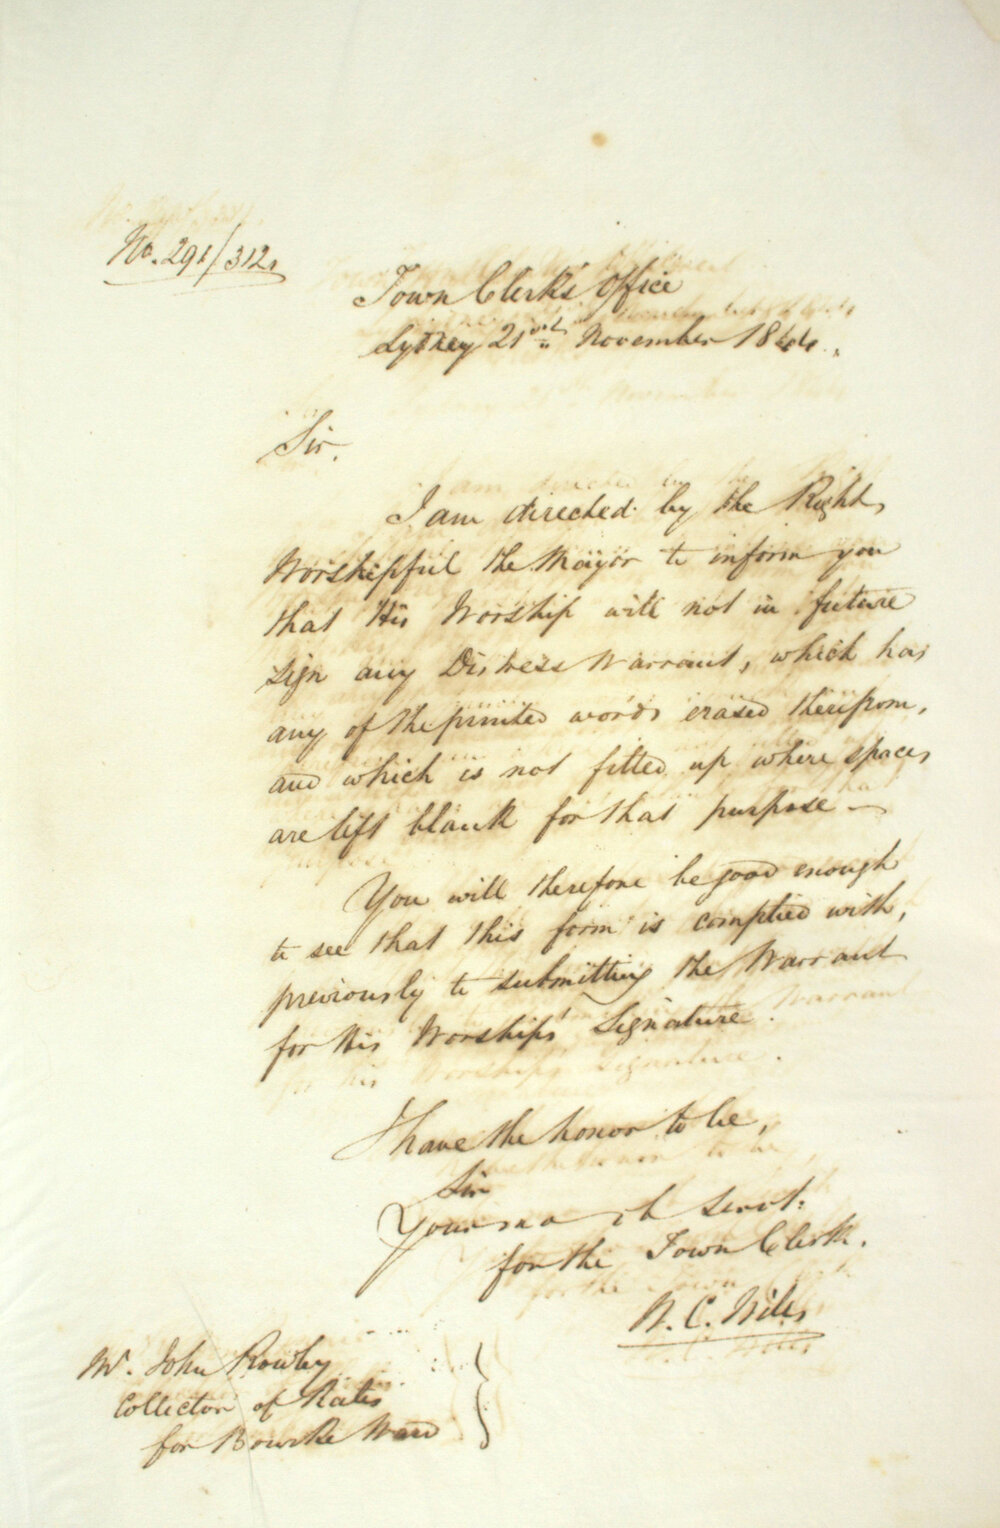 No. 291/312,
Town Clerk's Office
Sydney 21st November 1844.
Sir,
I am directed by the Right
Worshipful the Mayor to inform you
that His Worship will not in future
sign any Distress Warrant, which has
any of the printed words erased therefrom,
and which is not filled up where spaces
are left blank for that purpose —
You will therefore be good enough
to see that this form is complied with,
previously to submitting the Warrant
for His Worship's Signature.
I have the honor to be,
Sir
Your servt.
for the Town Clerk.
W. C. Wills
Mr. John Rowley
Collector of Rates
for Bourke Ward